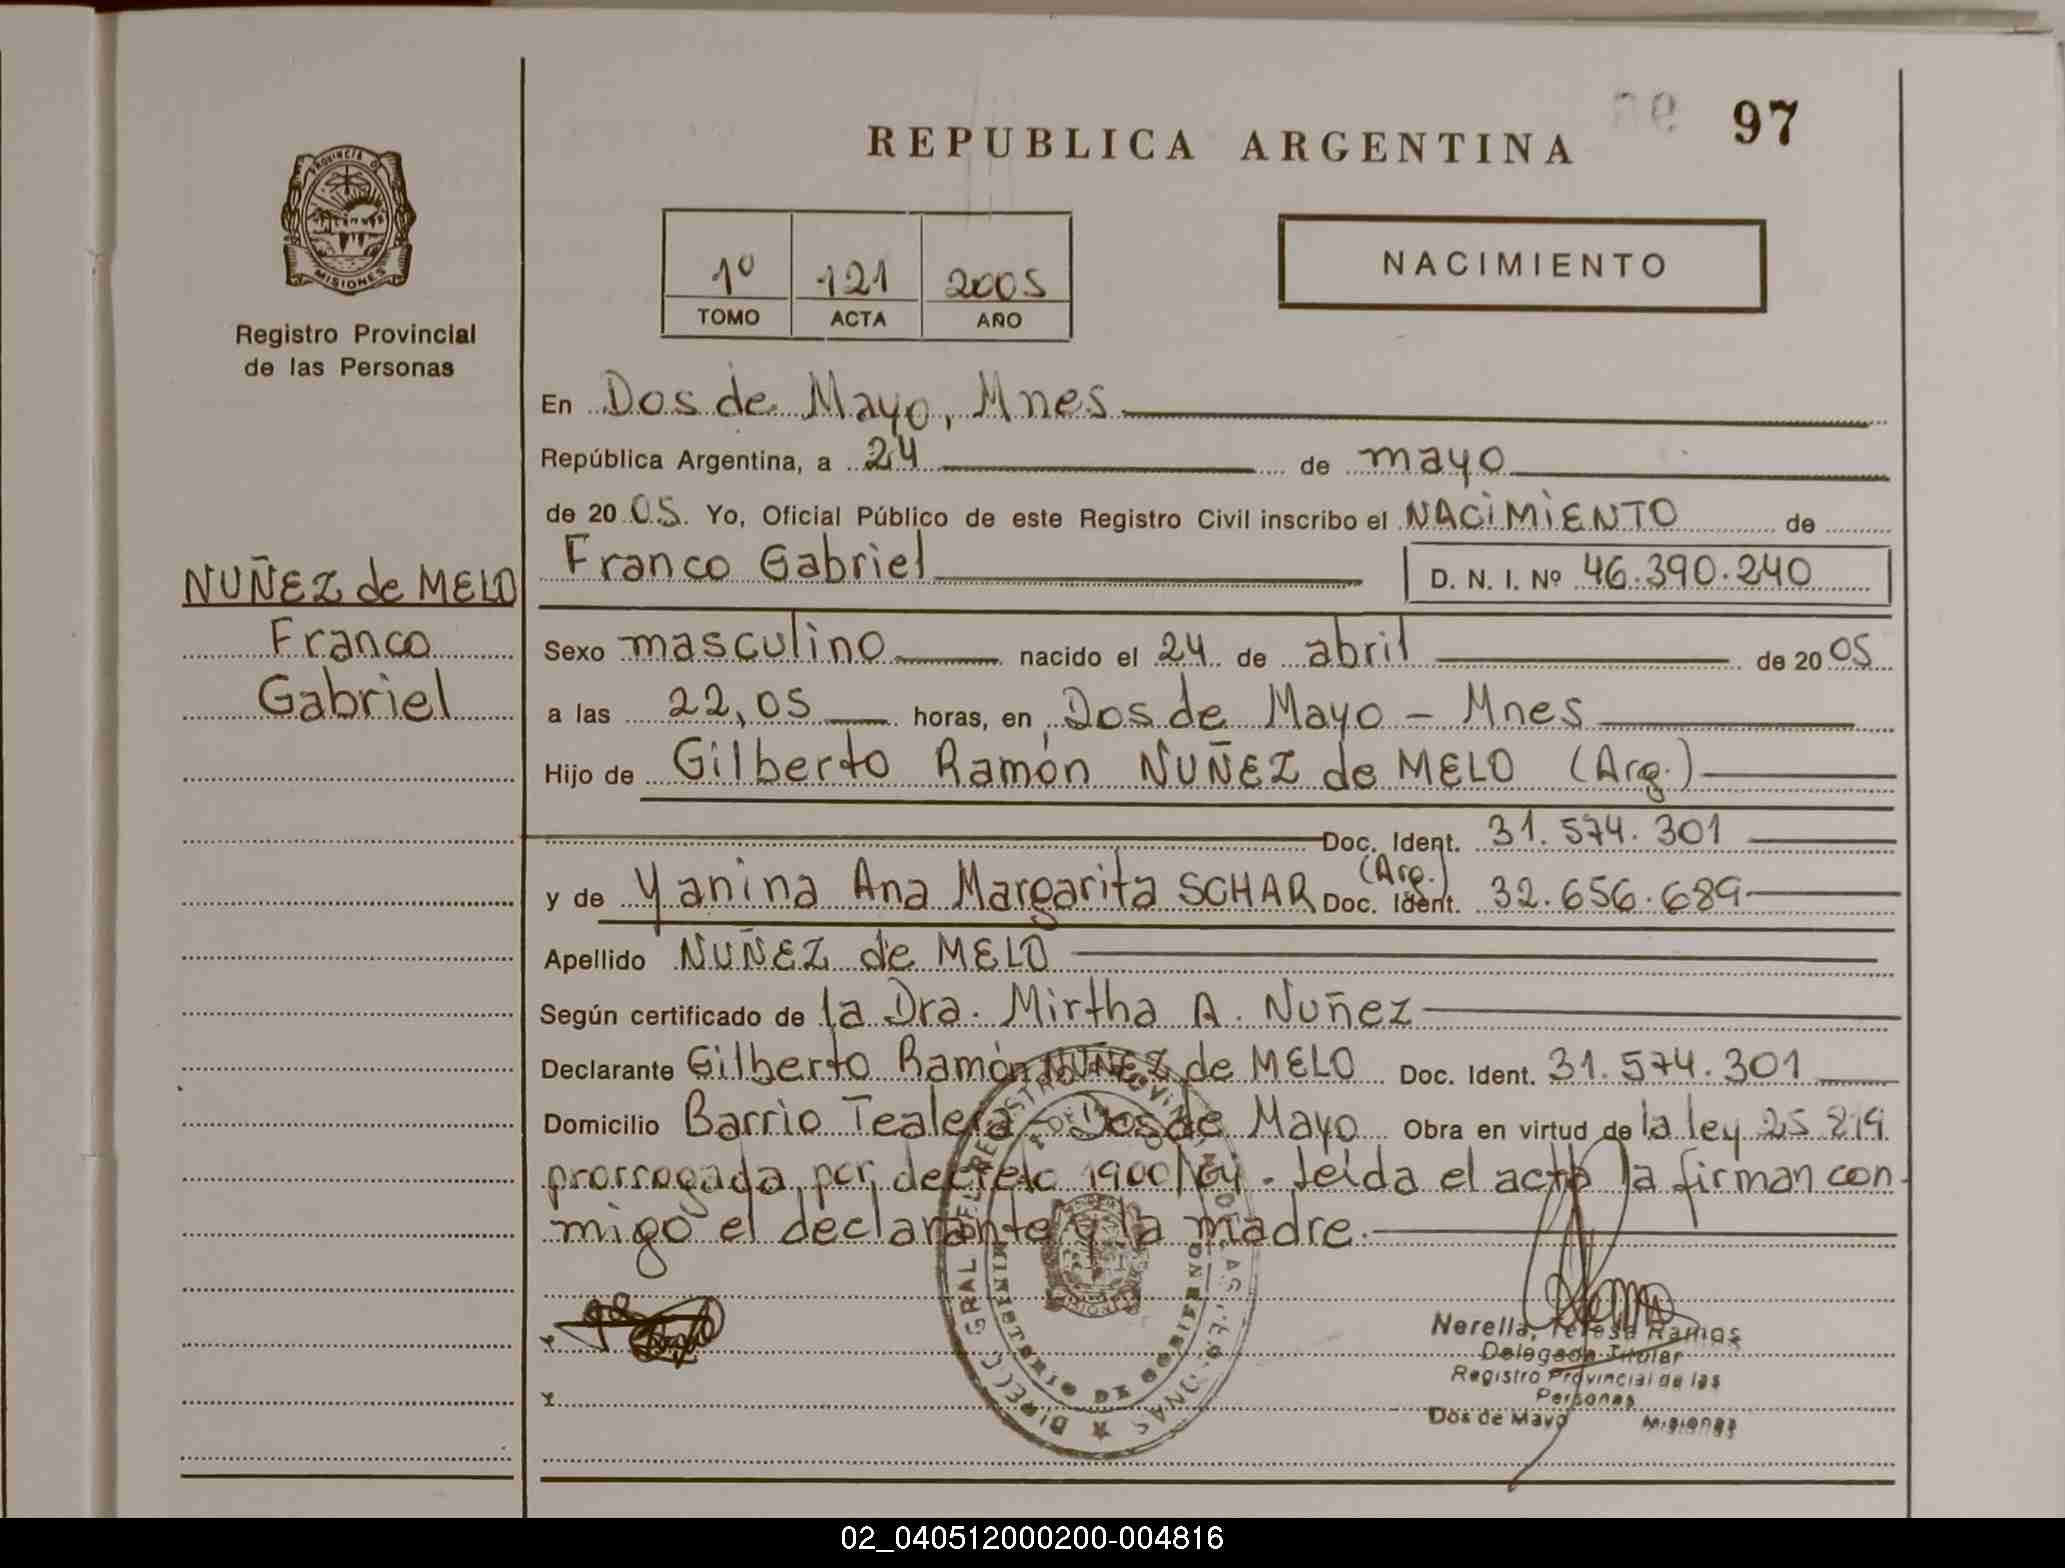 PROVINCIA DE
MISIONES
Registro Provincial
de las Personas
NUÑEZ de MELO
Franco
Gabriel
97
REPUBLICA ARGENTINA
1º 121 2005
TOMO ACTA AÑO
NACIMIENTO
En Dos de Mayo, Mnes
República Argentina, a 24 de mayo
de 2005. Yo, Oficial Público de este Registro Civil inscribo el NACIMIENTO de
Franco Gabriel D. N. I. Nº 46.390.240
Sexo masculino nacido el 24 de abril de 2005
a las 22,05 horas, en Dos de Mayo - Mnes
Hijo de Gilberto Ramón NUÑEZ de MELO (Arg.)
Doc. Ident. 31.574.301
y de Yanina Ana Margarita SCHAR (Arg.) Doc. Ident. 32.656.689
Apellido NUÑEZ de MELO
Según certificado de la Dra. Mirtha A. Nuñez
Declarante Gilberto Ramón NUÑEZ de MELO Doc. Ident. 31.574.301
Domicilio Barrio Tealera - Dos de Mayo Obra en virtud de la ley 25.819
prorrogada por decreto 1900/04. leída el acta la firman con
migo el declarante y la madre.
Nerella, Teresa Ramos
Delegada Titular
Registro Provincial de las
Personas
Dos de Mayo Misiones
MINISTERIO DE GOBIERNO
02_040512000200-004816